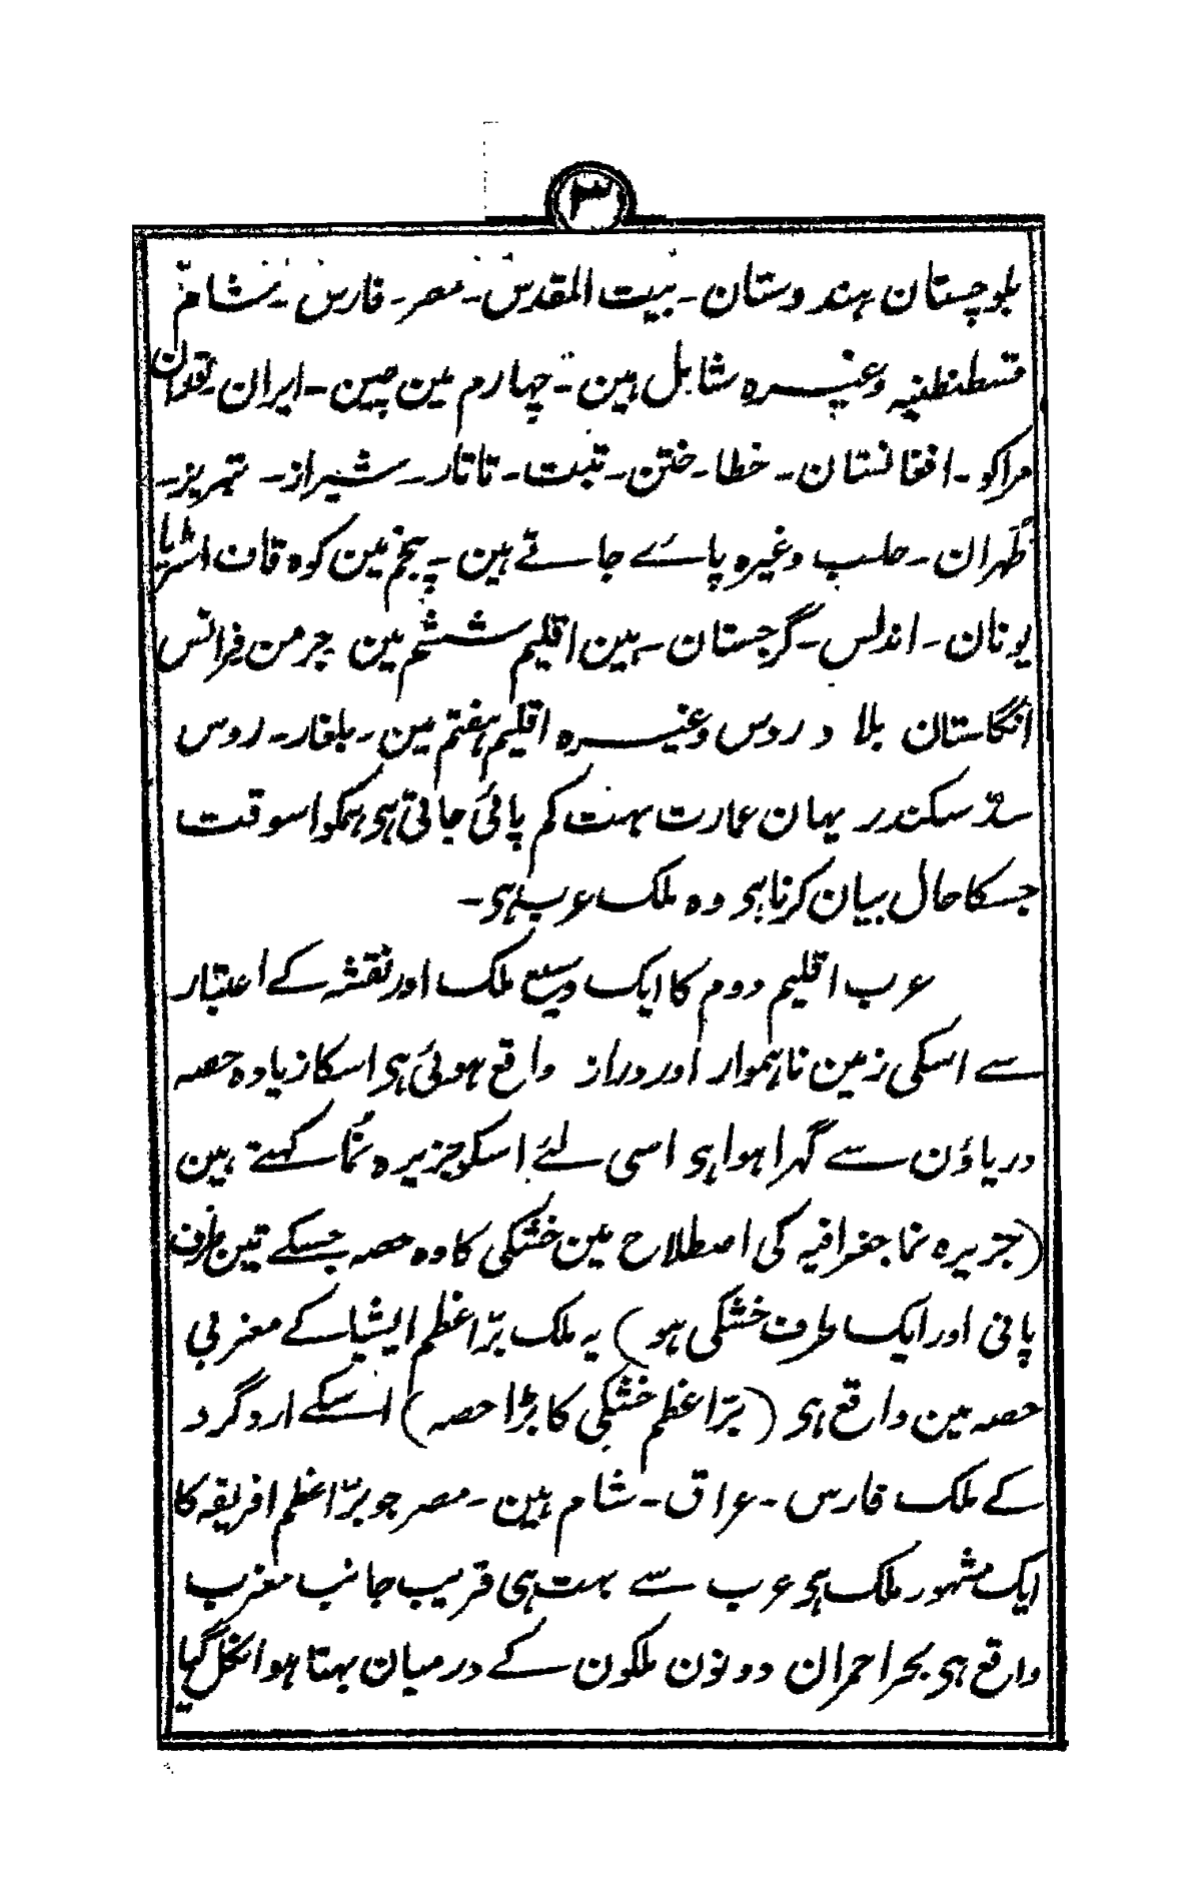 ۳
بلوچستان ہندوستان۔ بیت المقدس۔ مصر۔ فارس۔ شام
قسطنطنیہ وغیرہ شامل ہین۔ چہارم مین چین۔ ایران۔ توران
مراکو۔ افغانستان۔ خطا۔ ختن۔ تبت۔ تاتار۔ شیراز۔ تبریز۔
طہران۔ حلب وغیرہ پائے جاتے ہین۔ پنجم مین کوہ قاف اسٹریا
یونان۔ اندلس۔ گرجستان۔ ہین اقلیم ششم مین جرمن فرانس
انگلستان بلاد روس وغیرہ اقلیم ہفتم مین۔ بلغار۔ روس
سد سکندر یہان عمارت بہت کم پائی جاتی ہی ہمکو اسوقت
جسکا حال بیان کرنا ہی وہ ملک عرب ہی۔
عرب اقلیم دوم کا ایک وسیع ملک اور نقشہ کے اعتبار
سے اسکی زمین ناہموار اور دراز واقع ہوئی ہی اسکا زیادہ حصہ
دریاؤن سے گہرا ہوا ہی اسی لئے اسکو جزیرہ نما کہتے ہین
(جزیرہ نما جغرافیہ کی اصطلاح مین خشکی کا وہ حصہ جسکے تین طرف
پانی اور ایک طرف خشکی ہو) یہ ملک برّ اعظم ایشیا کے مغربی
حصہ مین واقع ہی (برّ اعظم خشکی کا بڑا حصہ) اسکے اردگرد
کے ملک فارس۔ عراق۔ شام ہین۔ مصر جو برّ اعظم افریقہ کا
ایک مشہور ملک ہی عرب سے بہت ہی قریب جانب مغرب
واقع ہی بحر احمر ان دونون ملکون کے درمیان بہتا ہوا نکل گیا